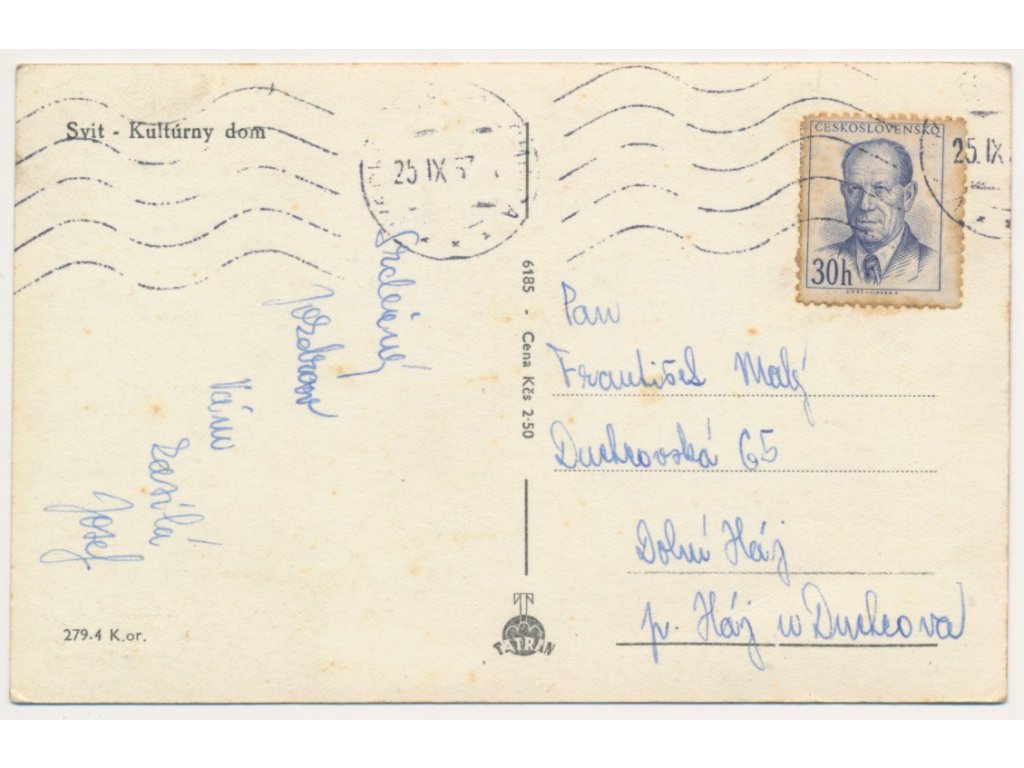 Svit - Kultúrny dom
25. IX 57
ČESKOSLOVENSKO
30h
25. IX
Srdečný
pozdrav
Vám
zasílá
Josef
6185 - Cena Kčs 2·50
Pan
František Malý
Duchcovská 65
Dolní Háj
p. Háj u Duchcova
279-4 K.or.
TATRAN